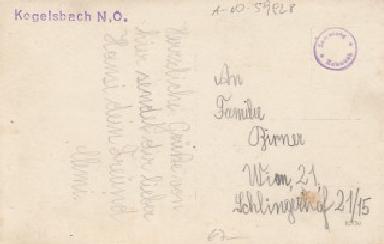 Kogelsbach N.Ö.
A-10-59828
Herzliche Grüße von
hier sendet der liebe
Hansi dein Freund
An
Familie
Birner
Wien, 21
Schlingerhof 21/15